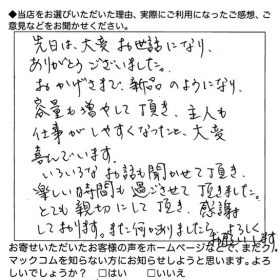 ◆当店をお選びいただいた理由、実際にご利用になったご感想、ご
意見などをお聞かせください。
先日は、大変お世話になり、
ありがとうございました。
おかげさまで、新品のようになり、
容量も増やして頂き、主人も
仕事がしやすくなったと、大変
喜んでいます。
いろいろなお話も聞かせて頂き、
楽しい時間も過ごさせて頂きました。
とても親切にして頂き、感謝
しております。また何かありましたら、よろしく
お願いします
お寄せいただいたお客様の声をホームページなどで、まだカ
マックコムを知らない方にお知らせしようと思います。よろ
しいでしょうか？ □はい □いいえ